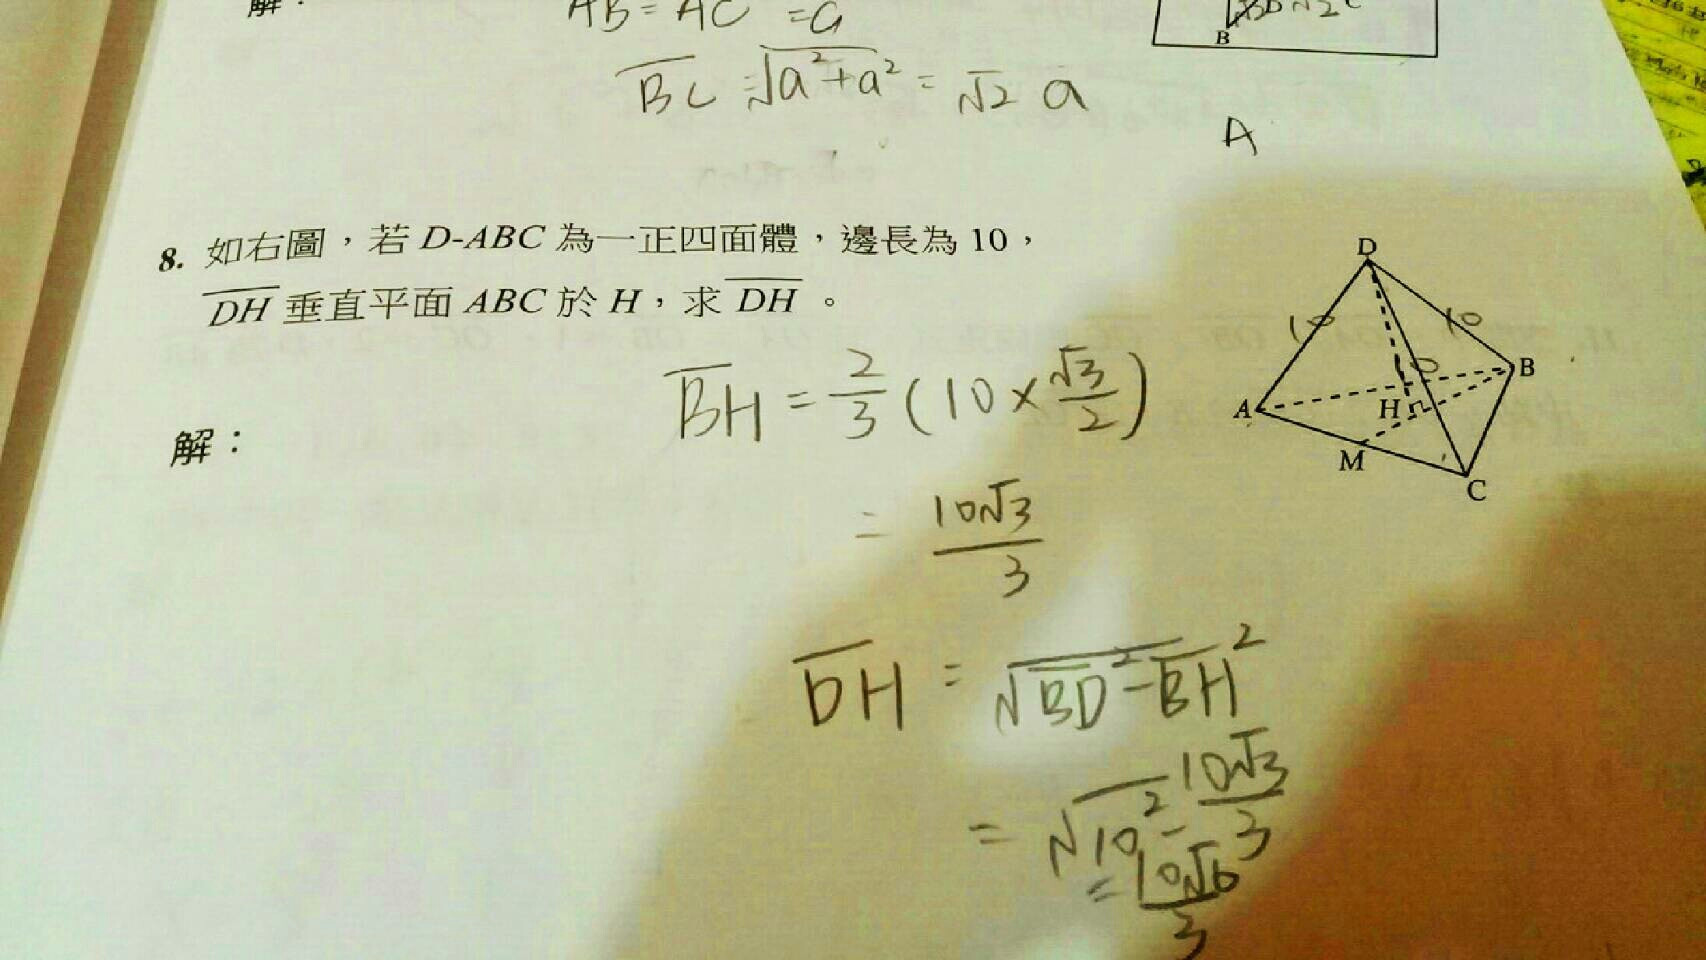 解：
AB = AC = a
BC = √a²+a² = √2 a
B
A
8. 如右圖，若 D-ABC 為一正四面體，邊長為 10，
DH 垂直平面 ABC 於 H，求 DH。
解：
BH = 2/3 (10 × √3/2)
= 10√3/3
DH = √BD²-BH²
= √10² - 10√3/3
= 10√6/3
D
10
10
A
H
B
M
C